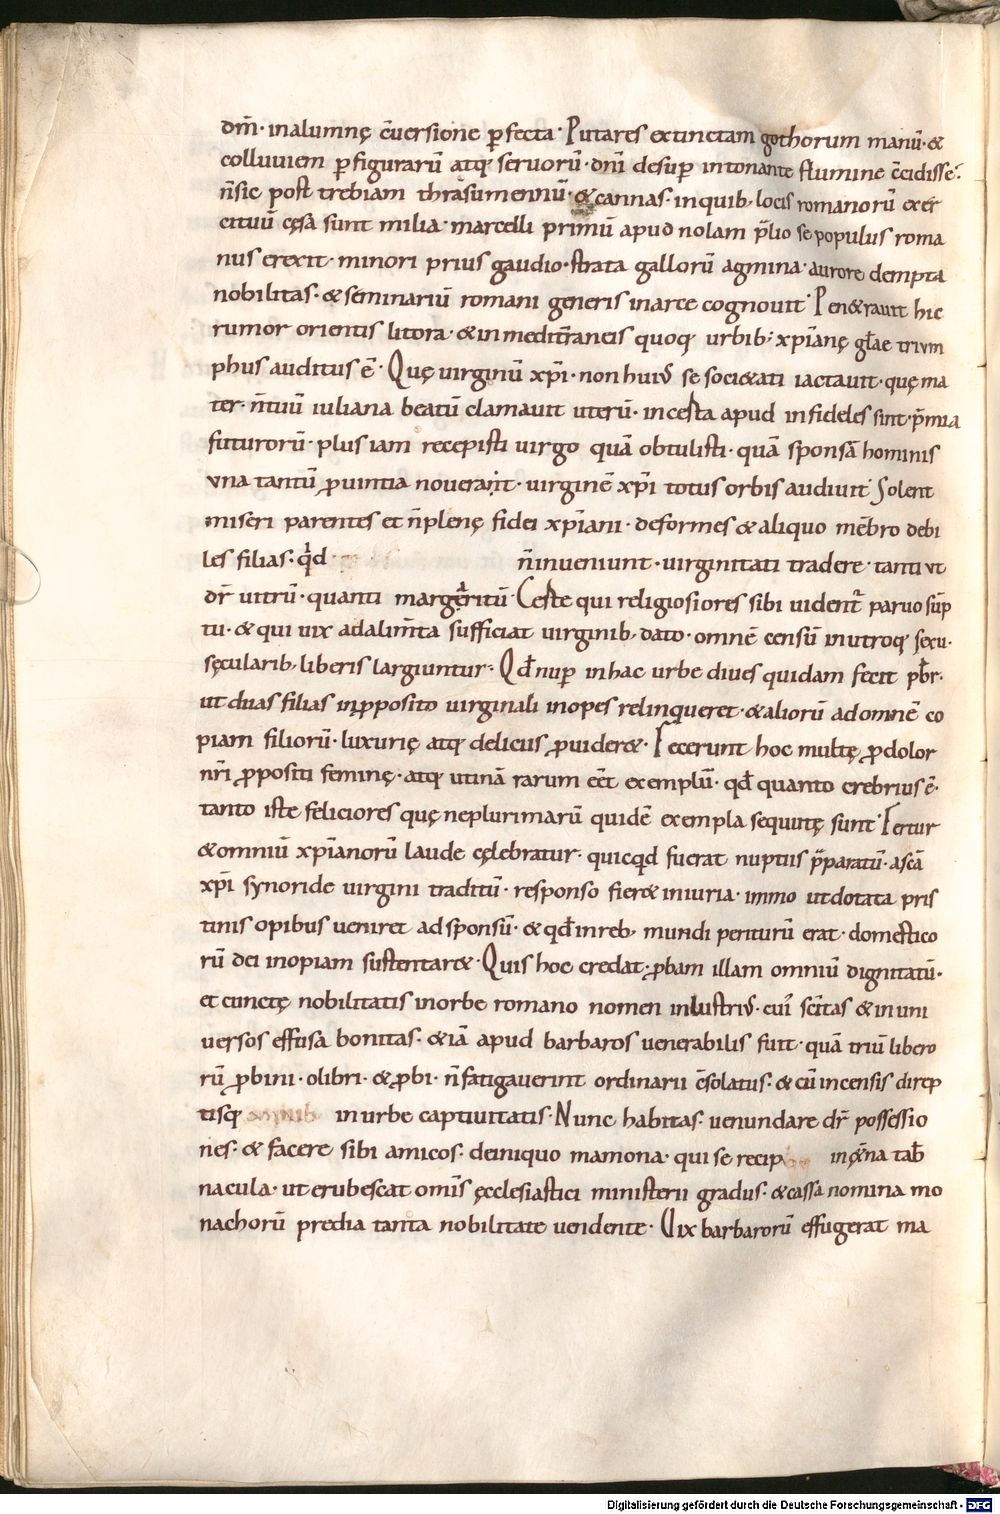 dm̄· in alumnę c̄uersione ꝑfecta· Putares extinctam gothorum manū· &
colluuiem ꝑfigurarū atq; seruorū· dn̄i desuꝑ intonante flumine c̄cidisse·
n̄ sic post trebiam thrasumennū· & cannas· in quib; locis romanorū exer
cituū cęsa sunt milia· marcelli primū apud nolam p̄lio se populus roma
nus erexit· minori prius gaudio· strata gallorū agmina· aurore dempta
nobilitas· & seminariū romani generis in arce cognouit· Pen&rauit hic
rumor orientis litora· & in medit̄raneis quoq; urbib; xp̄ianę gl̄ae trium
phus auditus ē· Quę uirginū xp̄i· non huius se soci&ati iactauit· quę ma
ter· n̄ tuū iuliana beatū clamauit uterū· incesta apud infideles sint· p̄mia
futurorū· plus iam recepisti uirgo quā obtulisti· quā sponsā hominis
vna tantū ꝓuintia nouerant· uirginē xp̄i totus orbis audiuit· Solent
miseri parentes et n̄ plenę fidei xp̄iani· deformes & aliquo mēbro debi
les filias· qd n̄ inueniunt· uirginitati tradere· tanti vt
dr̄ uitrū· quanti margeritū· Certe qui religiosiores sibi uident̄ paruo sūp
tu· & qui uix ad alim̄ta sufficiat uirginib; dato· omnē censū in utroq; sexu·
sęcularib; liberis largiuntur· Qd̄ nuꝑ in hac urbe diues quidam fecit pb̄r·
ut duas filias in ꝓposito uirginali inopes relinqueret· & aliorū ad omnē co
piam filiorū· luxurię atq; deliciis ꝓuider&· Fecerunt hoc multę ꝓdolor
nr̄i ꝓpositi feminę· atq; utinā rarum eēt exemplū· qd̄ quanto crebrius ē·
tanto iste feliciores quę ne plurimarū quidē exempla sequutę sunt· Fertur
& omniū xp̄ianorū laude cęlebratur· quicqd fuerat nuptiis p̄paratū· a scā
xp̄i synoride uirgini traditū· re sponso fier& iniuria· immo ut dotata pris
tinis opibus ueniret ad sponsū· & qd̄ in reb; mundi periturū erat· domestico
rū dei inopiam sustentar&· Quis hoc credat· ꝓbam illam omniū dignitatū·
et cunctę nobilitatis in orbe romano nomen inlustrius· cui scītas & in uni
uersos effusa bonitas· & iā apud barbaros uenerabilis fuit· quā triū libero
rū ꝓbini· olibri· & ꝓbi· n̄ fatigauerint ordinarii c̄solatus· & cū incensis direp
tisq; in urbe captiuitatis· Nunc habitas· uenundare dr̄ possessio
nes· & facere sibi amicos· de iniquo mamona· qui se recip in ęt̄na tab̄
nacula· ut erubescat om̄is ęcclesiastici ministerii gradus· & cassa nomina mo
nachorū predia tanta nobilitate uendente· Vix barbarorū effugerat ma
Digitalisierung gefördert durch die Deutsche Forschungsgemeinschaft - DFG